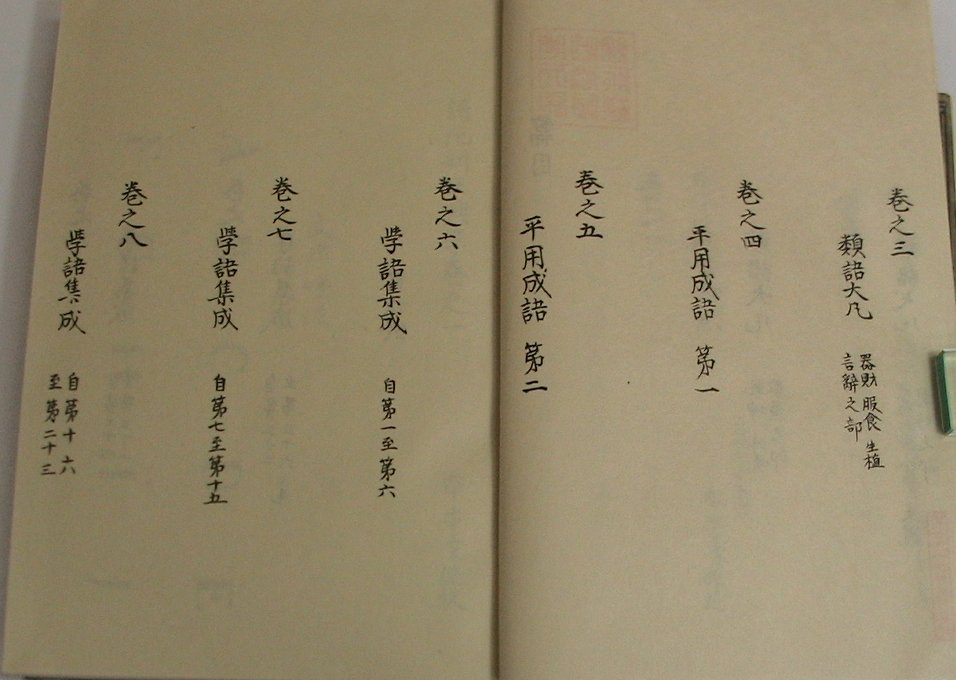 巻之三
類語大凡
器財 服食 生植
言辭之部
巻之四
平用成語 第一
巻之五
平用成語 第二
巻之六
学語集成 自第一至第六
巻之七
学語集成 自第七至第十五
巻之八
学語集成
自第十六
至第二十三